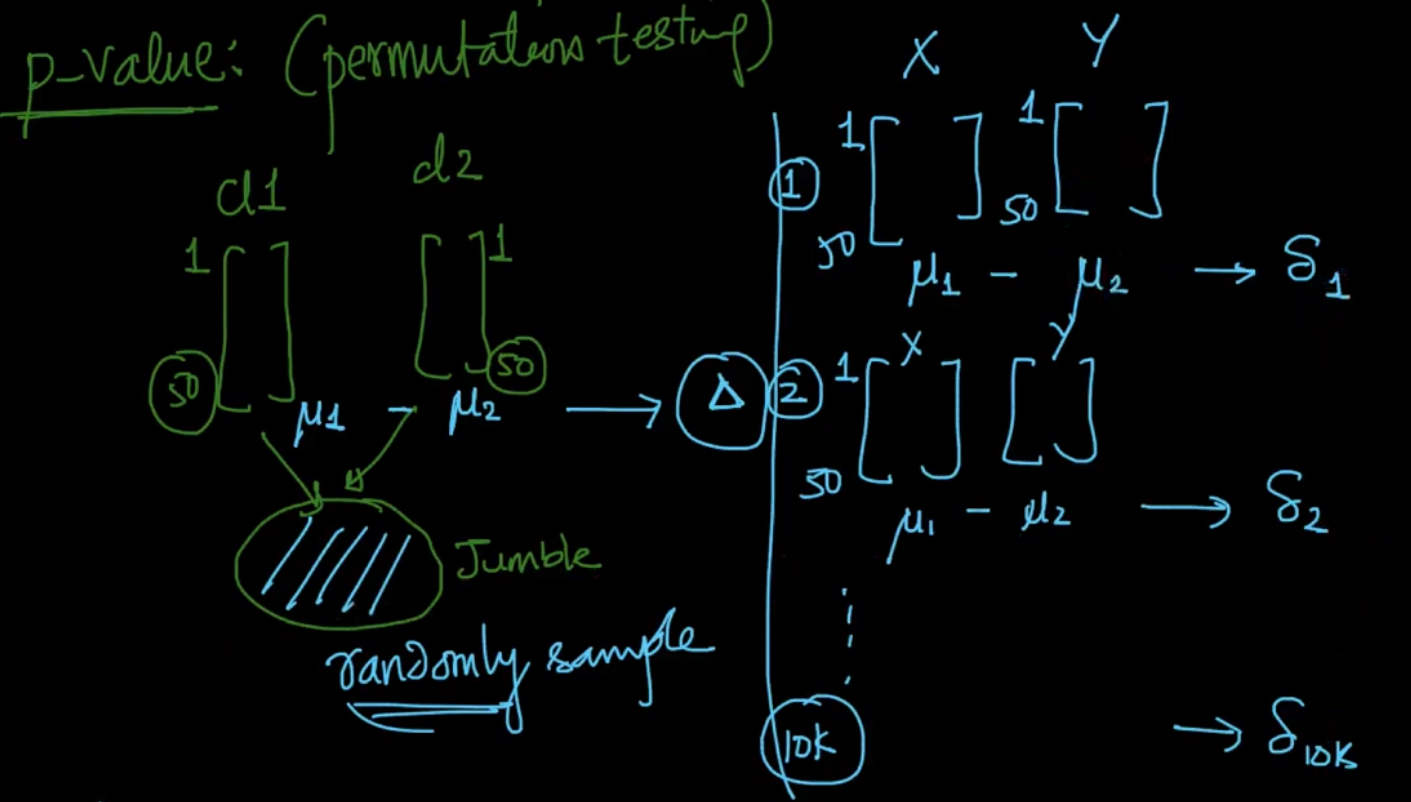 p-value: (permutations testing)
d1 d2
1 1
50 50
μ1 - μ2 → Δ
Jumble
randomly sample
X Y
1 1
1
50 50
μ1 - μ2 → δ1
X Y
2 1
50
μ1 - μ2 → δ2
10K → δ10K